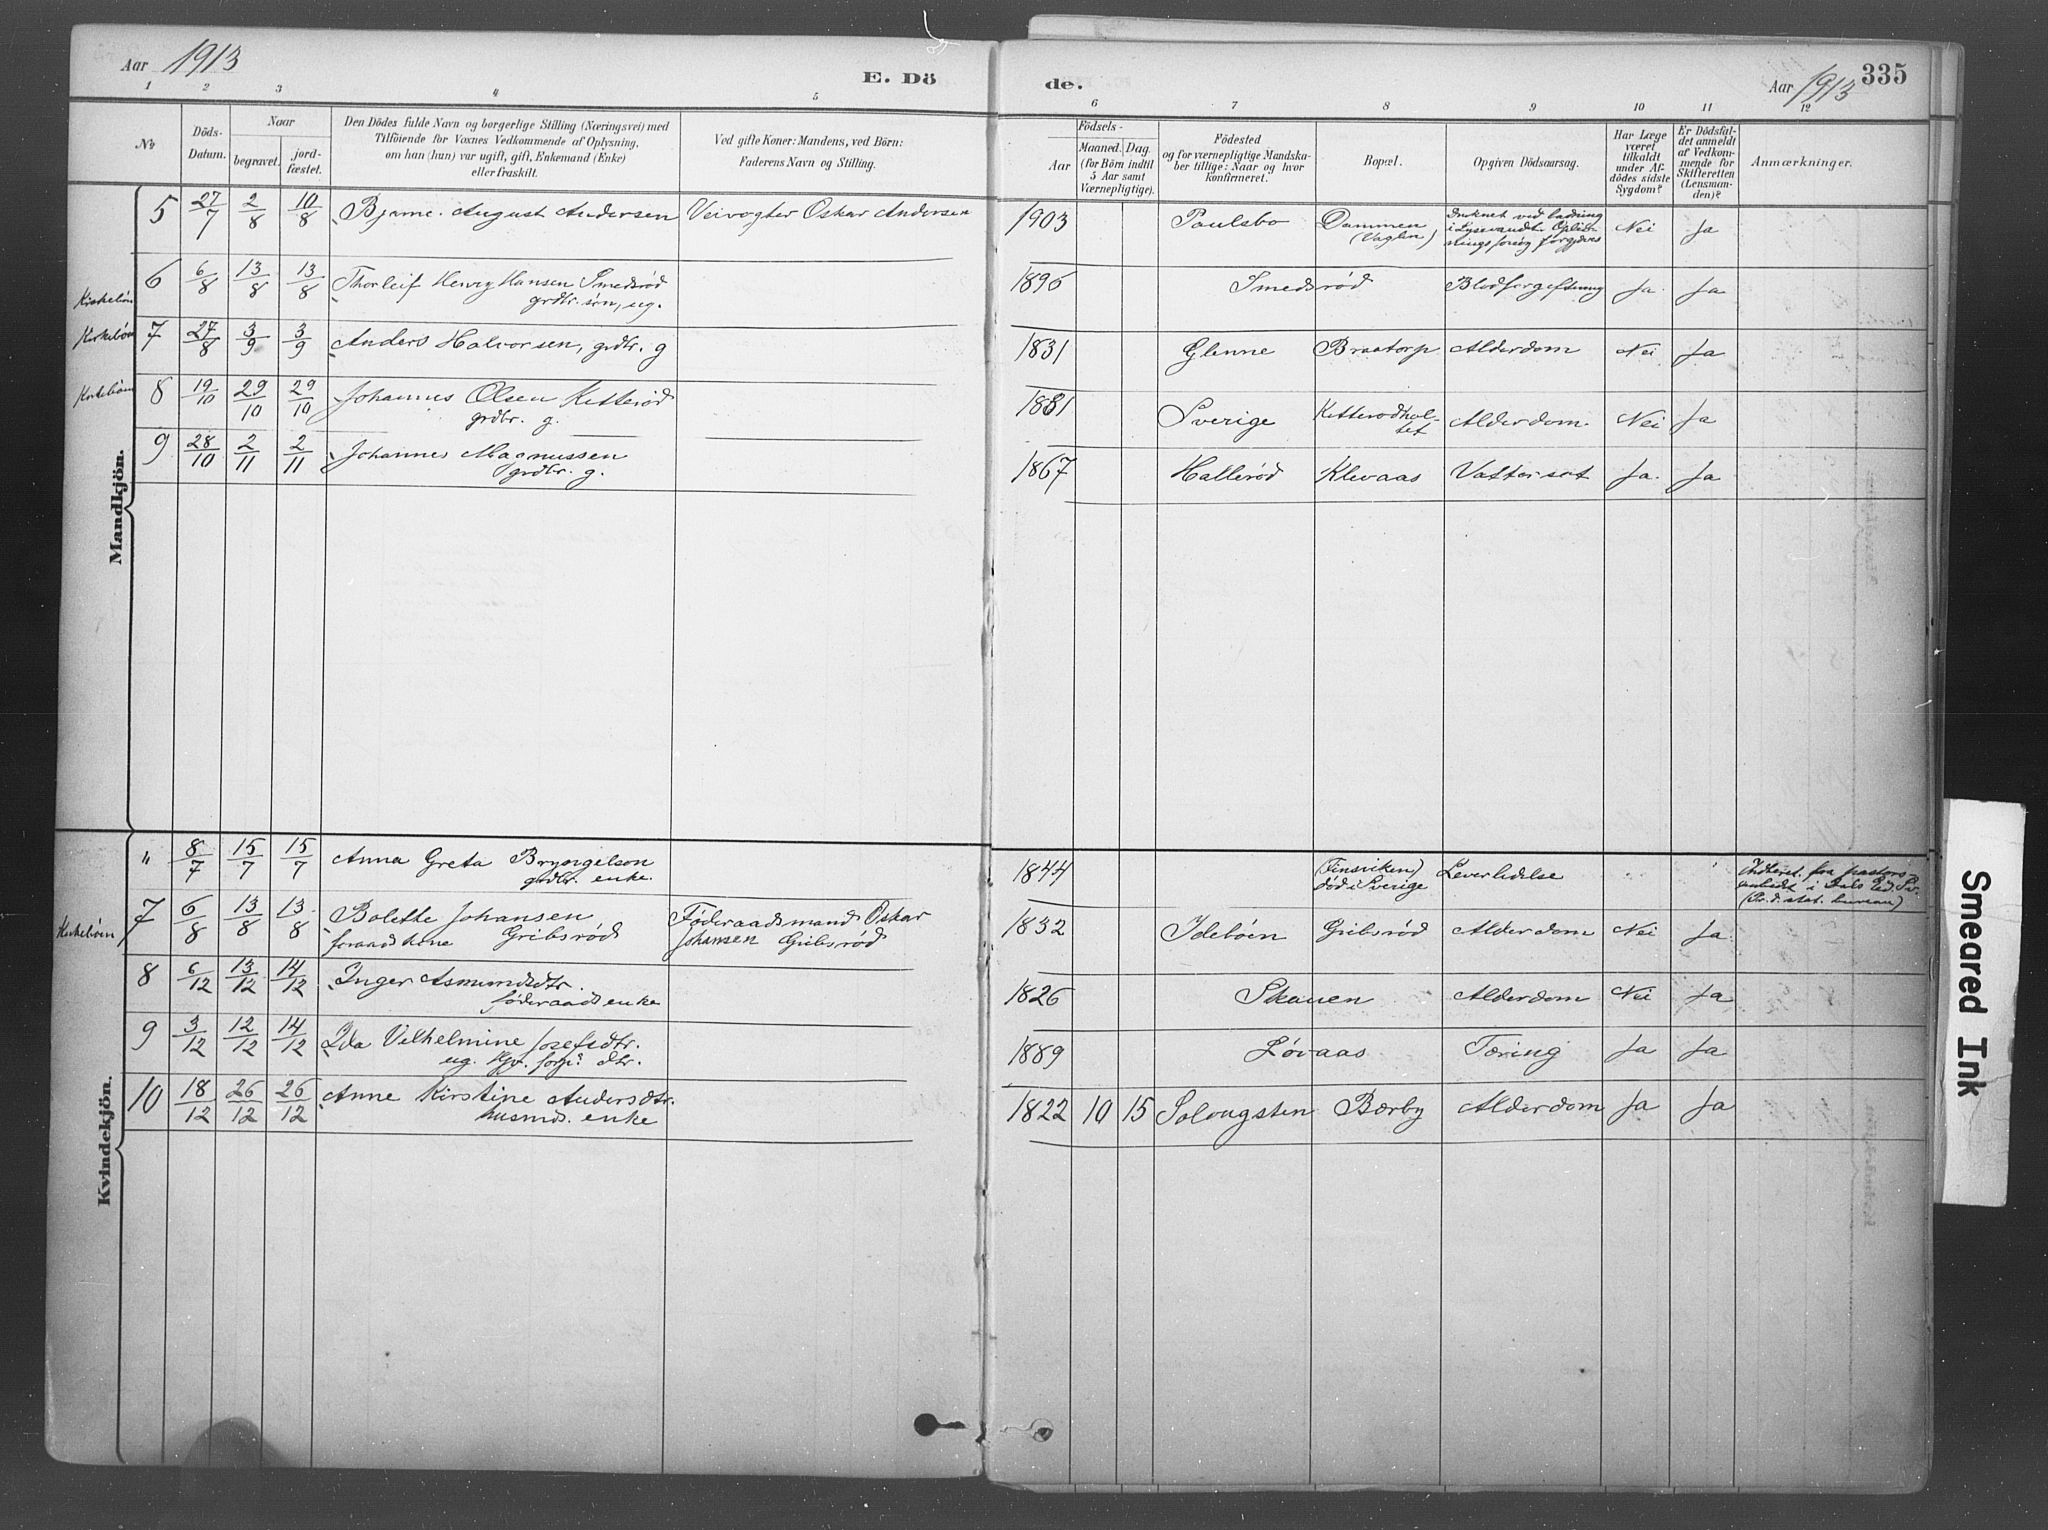 Aar 1913
E. Dö
1 2 3 4 5
№
Döds-
Datum.
Naar
begravet.
jord-
fæstet.
Den Dödes fulde Navn og borgerlige Stilling (Næringsvei) med
Tilföiende for Voxnes Vedkommende af Oplysning,
om han (hun) var ugift, gift, Enkemand (Enke)
eller fraskilt.
Ved gifte Koner: Mandens, ved Börn:
Faderens Navn og Stilling.
Mandkjön.
5 27/7 2/8 10/8 Bjarne August Andersen Veivogter Oskar Andersen
6 6/8 13/8 13/8 Thorleif Henry Hansen Smedsrød
grdbr. søn, ug.
7 27/8 3/9 3/9 Anders Halvorsen, grdbr. g
8 19/10 29/10 29/10 Johannes Olsen Ketterød
grdbr. g.
9 28/10 2/11 2/11 Johannes Magnussen
grdbr. g.
Kvindekjön.
" 8/7 15/7 15/7 Anna Greta Bryngelson
grdbr. enke.
Kirkebøen 7 6/8 13/8 13/8 Bolette Johansen Føderaadsmand Oskar
Gribsrød Johansen Gribsrød
8 6/12 13/12 14/12 Inger Asmundsdtr.
føderaads enke
9 3/12 12/12 14/12 Ida Vilhelmine Josefsdtr.
ug. dtr.
10 18/12 26/12 26/12 Anne Kirstine Andersdtr.
husmds. enke
de.
Aar 1913 335
6 7 8 9 10 11 12
Födsels-
Aar
Maaned. Dag.
(for Börn indtil
5 Aar samt
Værnepligtige).
Födested
og for værnepligtige Mandska-
ber tillige: Naar og hvor
konfirmeret.
Bopæl.
Opgiven Dödsaarsag.
Har Læge
været
tilkaldt
under Af-
dödes sidste
Sygdom?
Er Dödsfal-
det anmeldt
af Vedkom-
mende for
Skifteretten
(Lensman-
den)?
Anmærkninger.
1903 Paulsbo Dammen Druknet ved badning
Nei Ja
1896 Smedsrød Blodforgiftning Ja Ja
1831 Glenne Braatorp Alderdom Nei Ja
1831 Sverige Ketterødhol-
tet Alderdom. Nei Ja
1867 Hallerød Klevaas Vattersot Ja. Ja
1844 (Finsviken)
død i Sverige Leverlidelse
1832 Idebøen Gribsrød Alderdom Nei Ja.
1826 Skauen Alderdom Nei Ja
1889 Løvaas Tæring Ja Ja
1822 10 15 Solongsten Bærby Alderdom Ja Ja
Smeared Ink